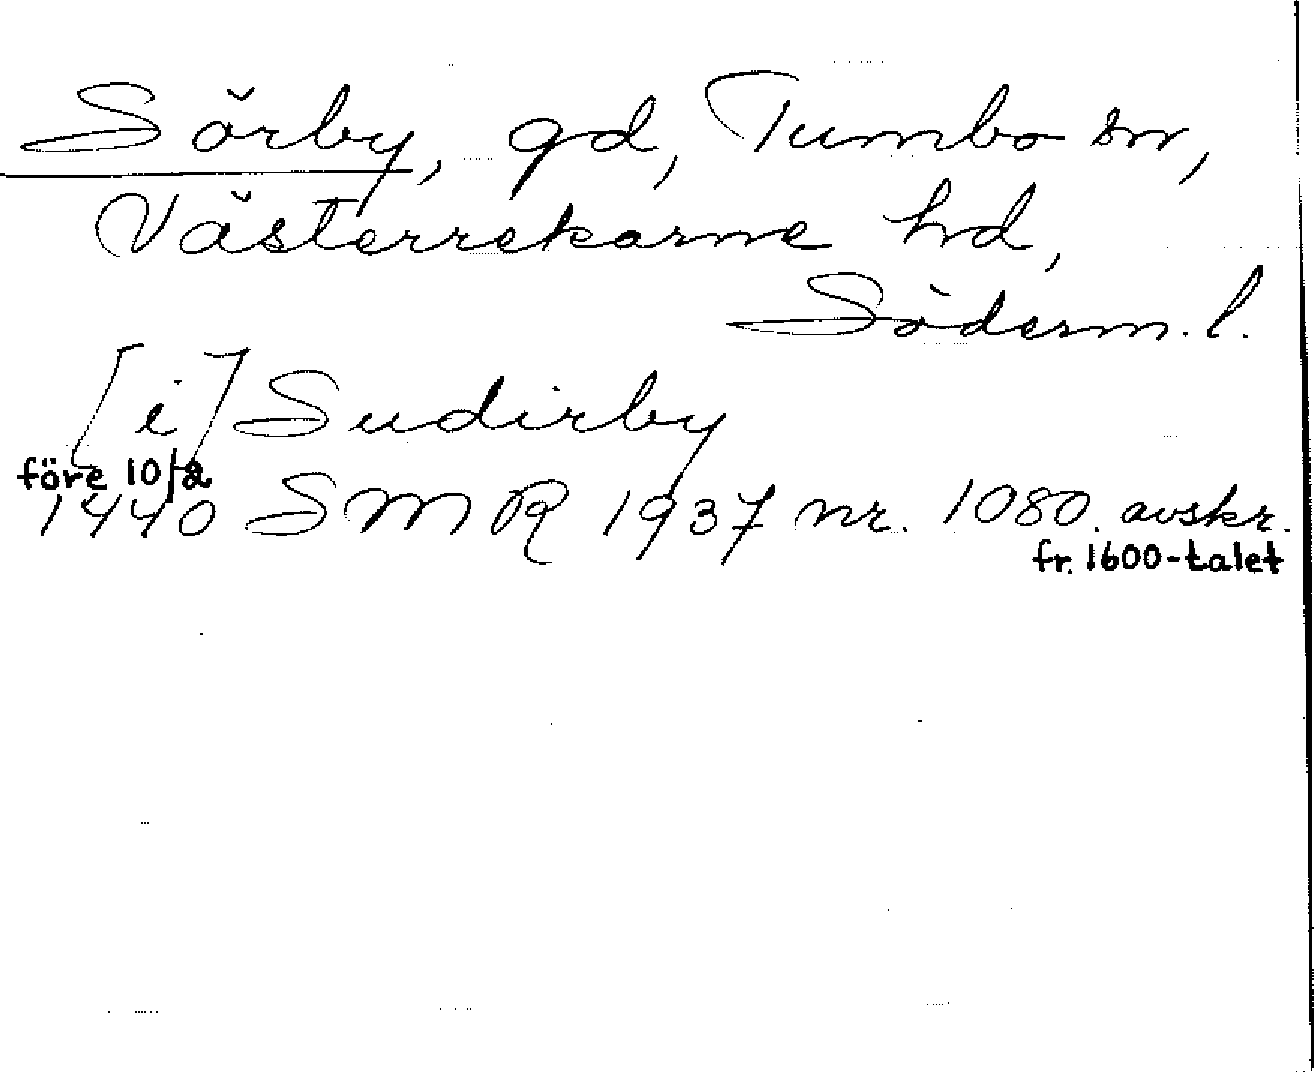 Sörby, gd, Tumbo sn,
Västerrekarne hd,
Söderm. l.
[i] Sudirby
före 10/2
1440 SMR 1937 nr. 1080. avskr.
fr. 1600-talet